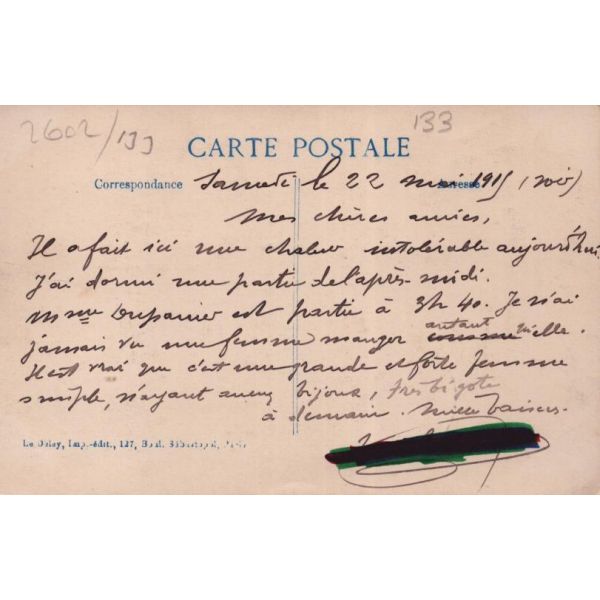 2602/133
133
CARTE POSTALE
Correspondance
Adresse
Samedi le 22 mai 1915 (soir)
Mes chères amies,
Il a fait ici une chaleur intolérable aujourd'hui
J'ai dormi une partie de l'après-midi.
Mme est partie à 3h 40. Je n'ai
jamais vu une femme manger autant qu'elle.
Il est vrai que c'est une grande et forte femme
simple, n'ayant aucun bijoux, très bigote
à demain. Mille baisers.
Le Deley, Imp.-édit., 127, Boul. Sébastopol, Paris